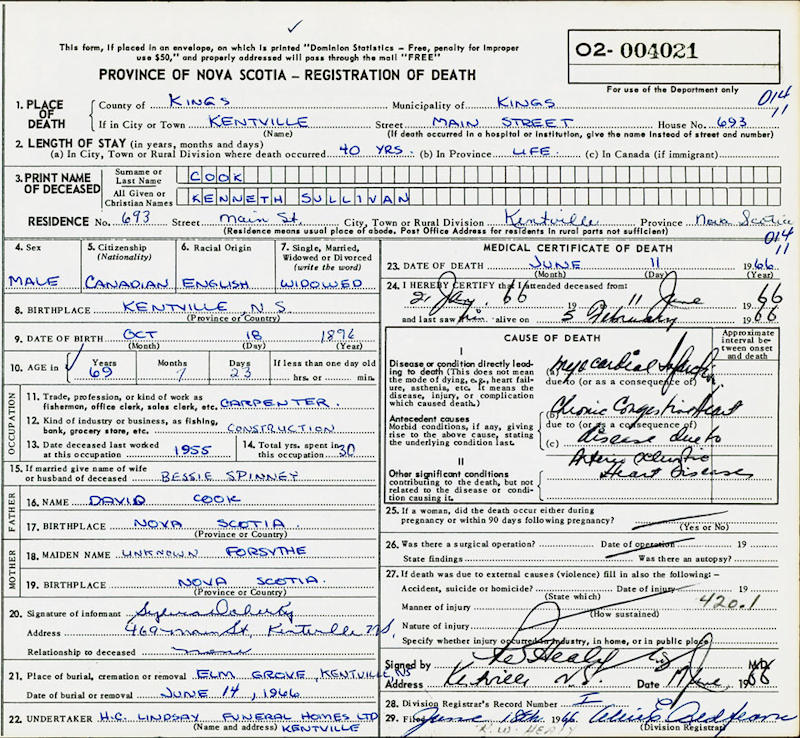 This form, if placed in an envelope, on which is printed "Dominion Statistics – Free, penalty for improper
use $50," and properly addressed will pass through the mail "FREE"
PROVINCE OF NOVA SCOTIA – REGISTRATION OF DEATH
O2- 004021
For use of the Department only
014
11
1. PLACE OF DEATH
County of KINGS Municipality of KINGS
If in City or Town KENTVILLE Street MAIN STREET House No. 693
(Name) (If death occurred in a hospital or institution, give the name instead of street and number)
2. LENGTH OF STAY (in years, months and days)
(a) In City, Town or Rural Division where death occurred 40 YRS. (b) In Province LIFE. (c) In Canada (if immigrant)
3. PRINT NAME OF DECEASED
Surname or Last Name COOK
All Given or Christian Names KENNETH SULLIVAN
RESIDENCE No. 693 Street Main St. City, Town or Rural Division Kentville Province Nova Scotia
(Residence means usual place of abode. Post Office Address for residents in rural parts not sufficient)
014
11
4. Sex
MALE
5. Citizenship
(Nationality)
CANADIAN
6. Racial Origin
ENGLISH
7. Single, Married,
Widowed or Divorced
(write the word)
WIDOWED
8. BIRTHPLACE KENTVILLE, N S
(Province or Country)
9. DATE OF BIRTH OCT 18 1896
(Month) (Day) (Year)
10. AGE in
Years Months Days If less than one day old
69 7 23 hrs. or min.
OCCUPATION
11. Trade, profession, or kind of work as
fishermon, office clerk, sales clerk, etc. CARPENTER.
12. Kind of industry or business, as fishing,
bank, grocery store, etc. CONSTRUCTION
13. Date deceased last worked
at this occupation 1955
14. Total yrs. spent in
this occupation 30
15. If married give name of wife
or husband of deceased BESSIE SPINNEY
FATHER
16. NAME DAVID COOK
17. BIRTHPLACE NOVA SCOTIA
(Province or Country)
MOTHER
18. MAIDEN NAME UNKNOWN FORSYTHE
19. BIRTHPLACE NOVA SCOTIA.
(Province or Country)
20. Signature of informant
Address 469 Main St, Kentville NS,
Relationship to deceased
21. Place of burial, cremation or removal ELM GROVE, KENTVILLE, NS
Date of burial or removal JUNE 14, 1966
22. UNDERTAKER H.C. LINDSAY FUNERAL HOMES LTD
(Name and address) KENTVILLE
MEDICAL CERTIFICATE OF DEATH
23. DATE OF DEATH JUNE 11 1966
(Month) (Day) (Year)
24. I HEREBY CERTIFY that I attended deceased from:
21 66 19 11 June 66
and last saw him alive on 5 February 1966
CAUSE OF DEATH
Approximate
interval be-
tween onset
and death
I
Disease or condition directly lead-
ing to death (This does not mean
the mode of dying, e.g., heart fail-
ure, asthenia, etc. It means the
disease, injury, or complication
which caused death.)
(a) Myocardial Infarction
due to (or as a consequence of)
Antecedent causes
Morbid conditions, if any, giving
rise to the above cause, stating
the underlying condition last.
(b) Chronic Congestive Heart
due to (or as a consequence of)
(c) disease due to
Heart Disease
II
Other significant conditions
contributing to the death, but not
related to the disease or condi-
tion causing it.
25. If a woman, did the death occur either during
pregnancy or within 90 days following pregnancy?
(Yes or No)
26. Was there a surgical operation? Date of operation 19
State findings Was there an autopsy?
27. If death was due to external causes (violence) fill in also the following: –
Accident, suicide or homicide? Date of injury 19
(State which)
Manner of injury 420.1
(How sustained)
Nature of injury
Specify whether injury occurred in industry, in home, or in public place
Signed by Healy M.D.
Address Kentville N.S. Date June, 1966
28. Division Registrar's Record Number I
29. Filed June 18th 1966
(Division Registrar)
R.W. HEALY